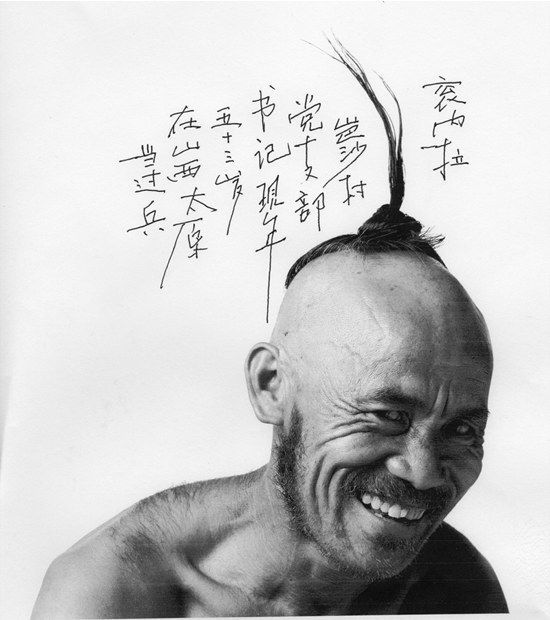 衮内拉
岜沙村
党支部
书记现年
五十三岁
在山西太原
当过兵